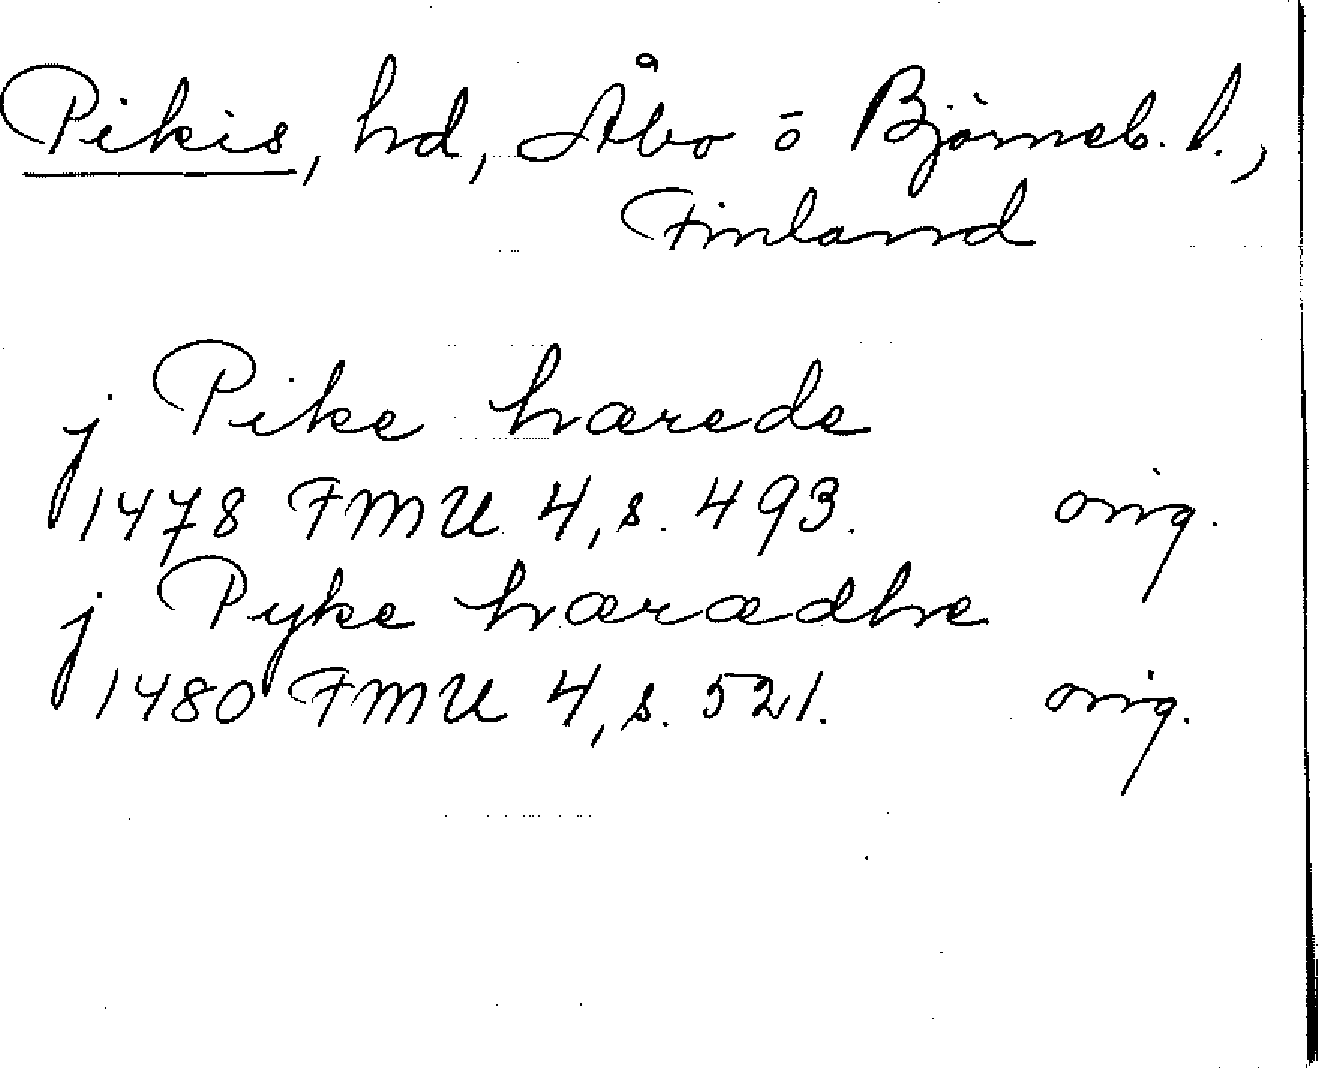 Pikis, hd, Åbo o Björneb. l.,
Finland
j Pike hærede
1478 FMU 4, s. 493. orig.
j Pyke hærædhe
1480 FMU 4, s. 521. orig.